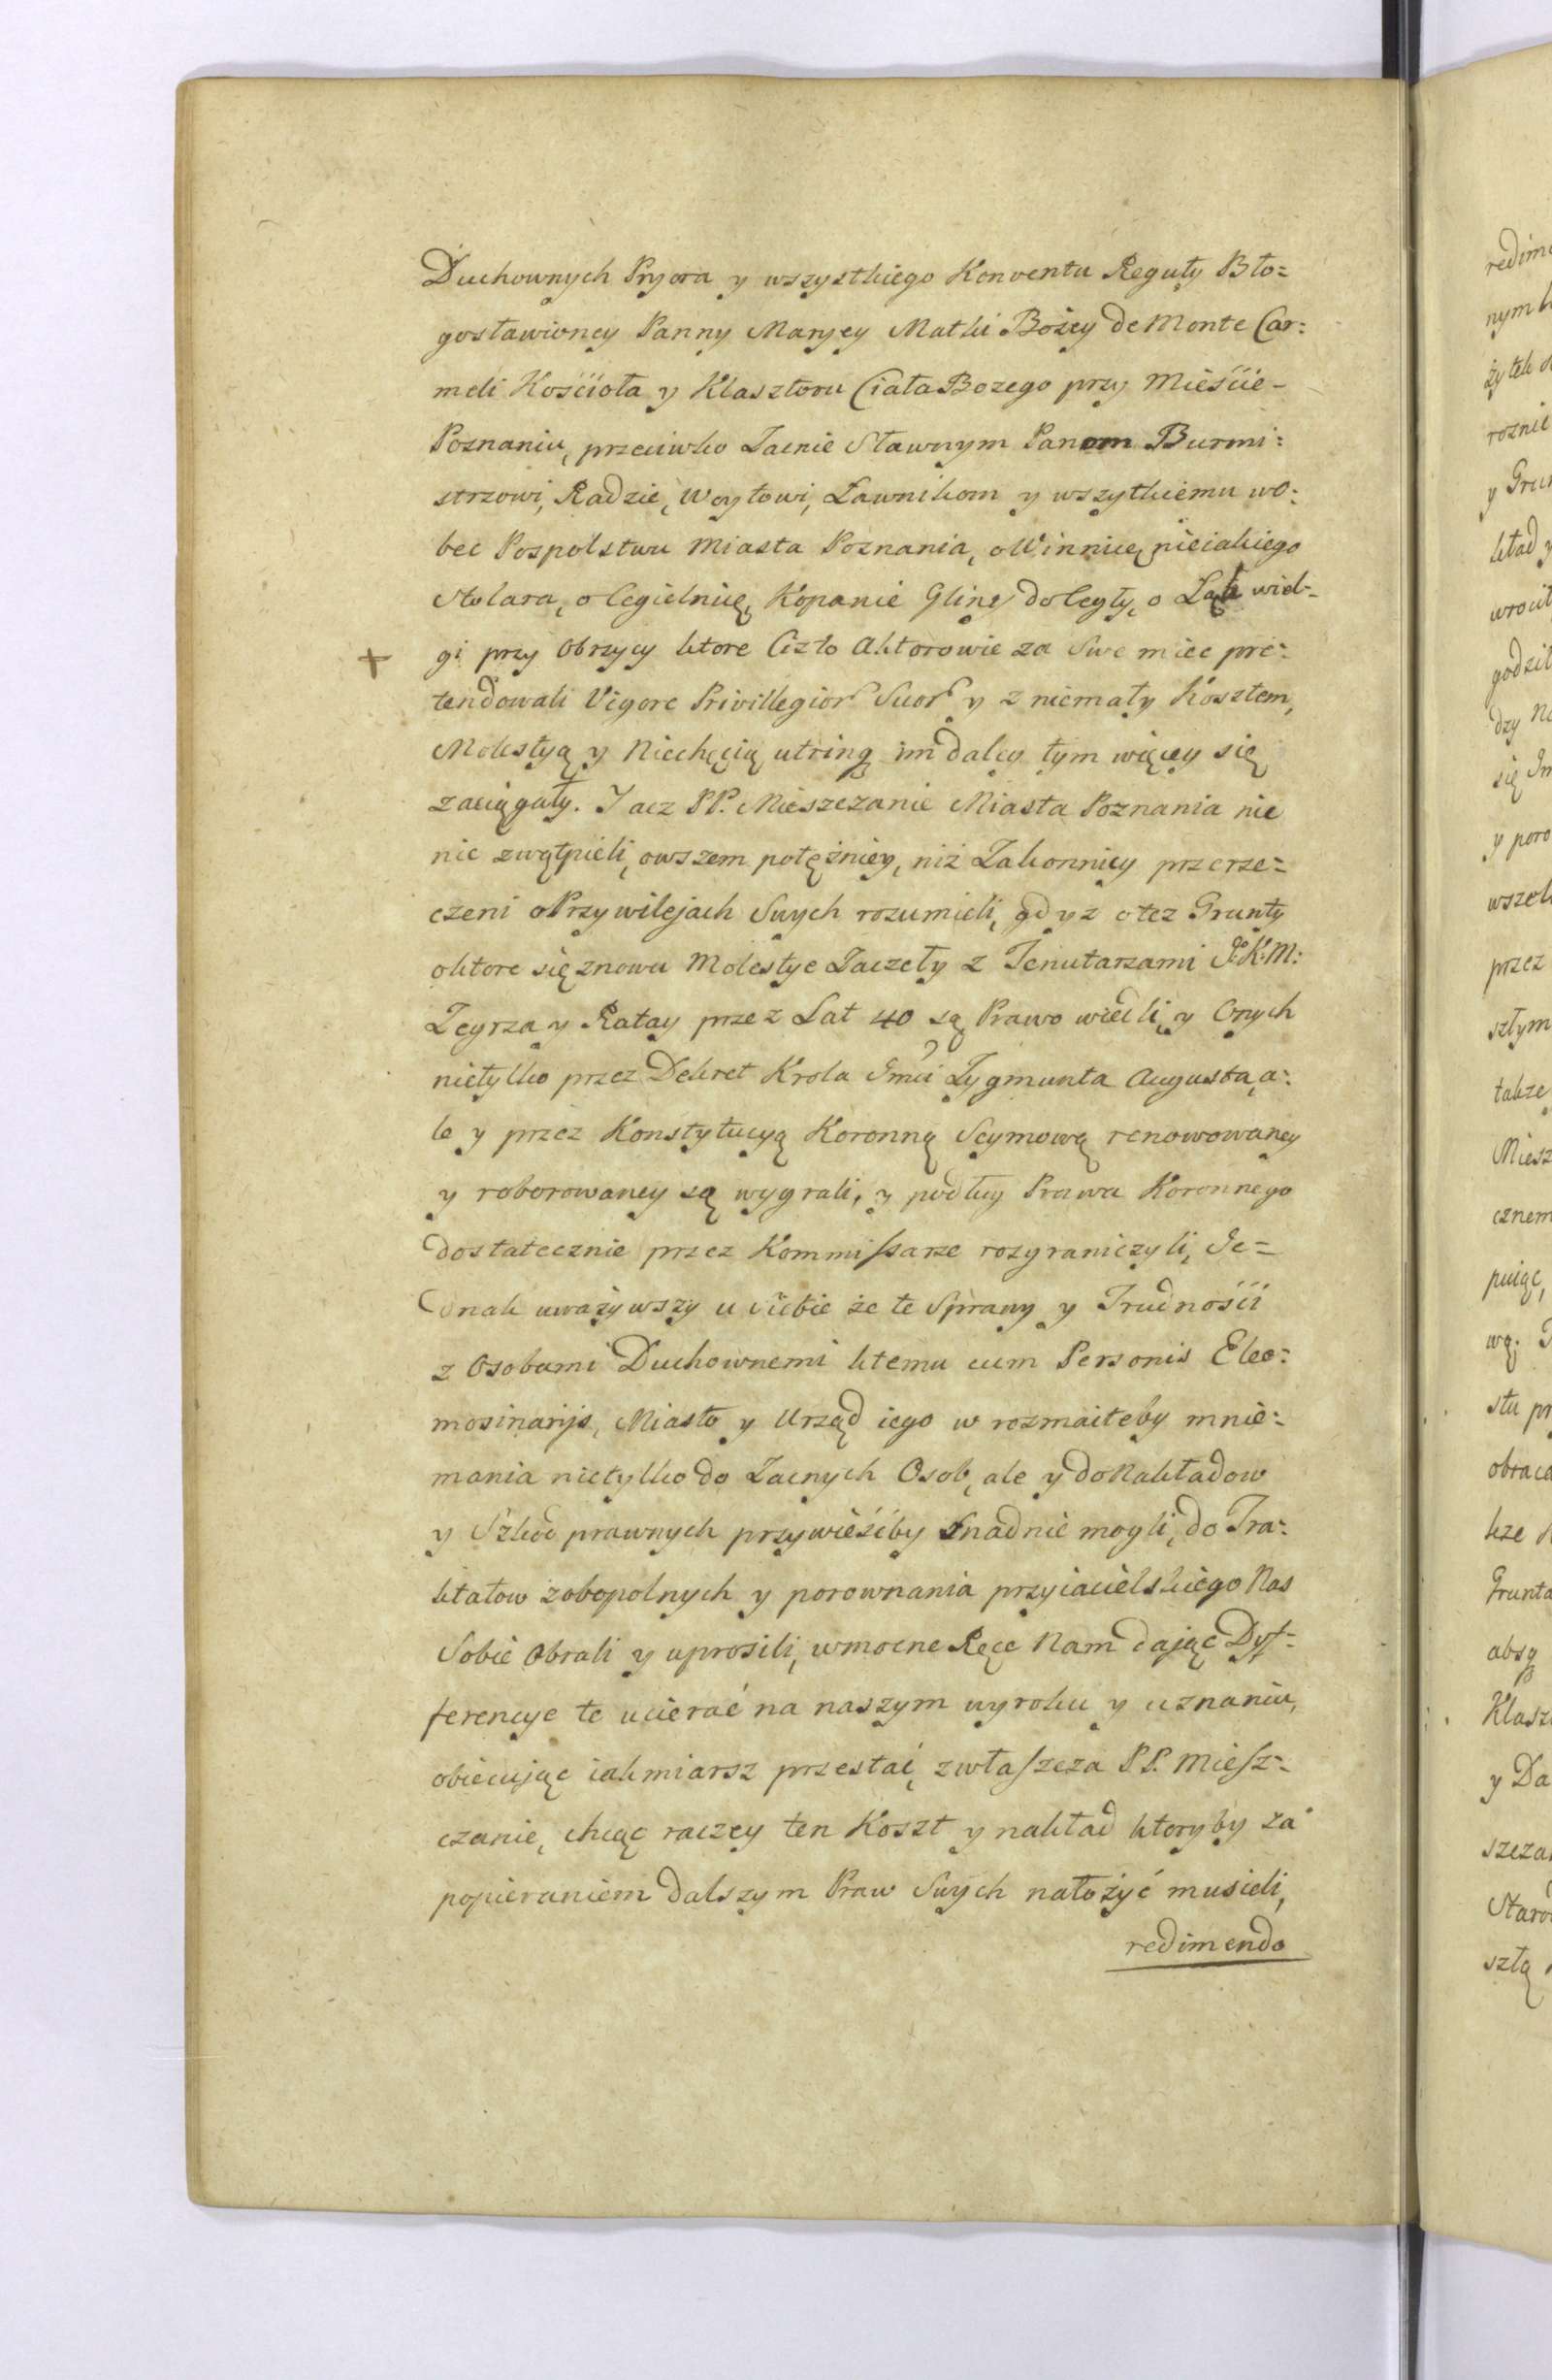 Duchownych Pryora y wszystkiego Konventu Reguły Bło=
gosławioney Panny Maryey Matki Bożey de Monte Car=
meli Kościoła y Klasztoru Ciała Bozego przy Mieście -
Poznaniu, przeciwko Zacnie Sławnym Panom Burmi=
strzowi, Radzie, Woytowi, Ławnikom y wszytkiemu wo=
bec Pospolstwu Miasta Poznania, o Winnicę nieiakiego
Stolara, o Cegielnię, Kopanie Gliny do Cegły, o Łąk wiel=
+ gi przy Obrzycy ktore Czło Aktorowie za Swe miec pre=
tendowali Vigore Privillegior Suor y z niemały Kosztem,
Molestyą y Niechęcią utrinq im daley tym więcey się
zaciągały. I acz PP. Mieszczanie Miasta Poznania nic
nie zwątpieli, owszem potężniey, niż Zakonnicy przerze=
czeni o Przywilejach Swych rozumieli, gdyz o tez Grunty
o ktore się znowu Molestye Zaczeły z Tenutarzami J:K:M:
Zegrza y Ratay przez Lat 40 są Prawo wiedli, y Onych
nietylko przez Dekret Krola Jmci Zygmunta Augusta, a=
le y przez Konstytucyą Koronną Seymową renowowaney
y roborowaney są wygrali, y podług Prawa Koronnego
dostatecznie przez Kommissarze rozgraniczyli, Je=
dnak uważywszy u siebie że te Sprawy y Trudności
z Osobami Duchownemi ktemu cum Personis Eleo=
mosinarijs, Miasto y Urząd iego w rozmaiteby mnie=
mania nietylko do Zacnych Osob, ale y do Nakładow
y Szkod prawnych przywieśćby snadnie mogli, do Tra=
ktatow zobopolnych y porownania przyiacielskiego Nas
Sobie Obrali y uprosili, w mocne Ręce Nam dając Dyf=
ferencye te ucierać na naszym wyroku y uznaniu,
obiecując iakmiarsz przestać, zwłaszcza P.P. Miesz=
czanie, chcąc raczey ten Koszt y nakład ktoryby za
popieraniem dalszym Praw Swych nałożyć musieli,
redimendo